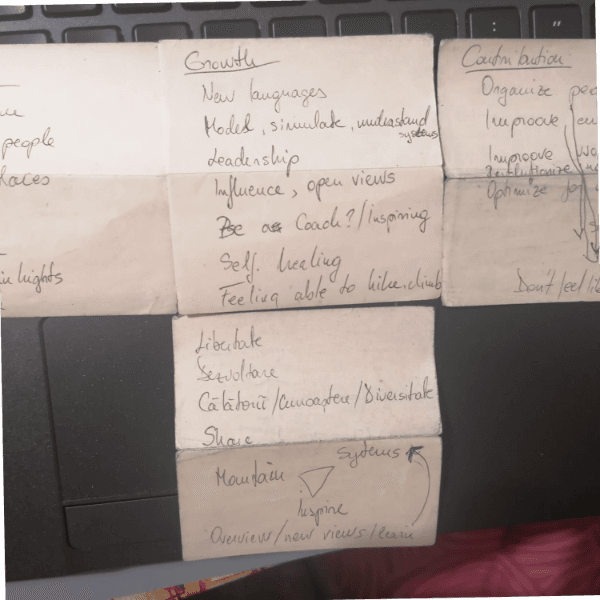 people
Growth
New languages
Model, simulate, understand
systems
Leadership
Influence, open views
Be a Coach?/inspiring
Self. healing
Feeling able to hike, climb
Contribution
Organize
Improove
Improove
Revolutionize
Optimize
Don't feel
Libertate
Dezvoltare
Călătorii/Cunoaștere/Diversitate
Share
Systems
Maintain
Inspire
Overview/new views/learn